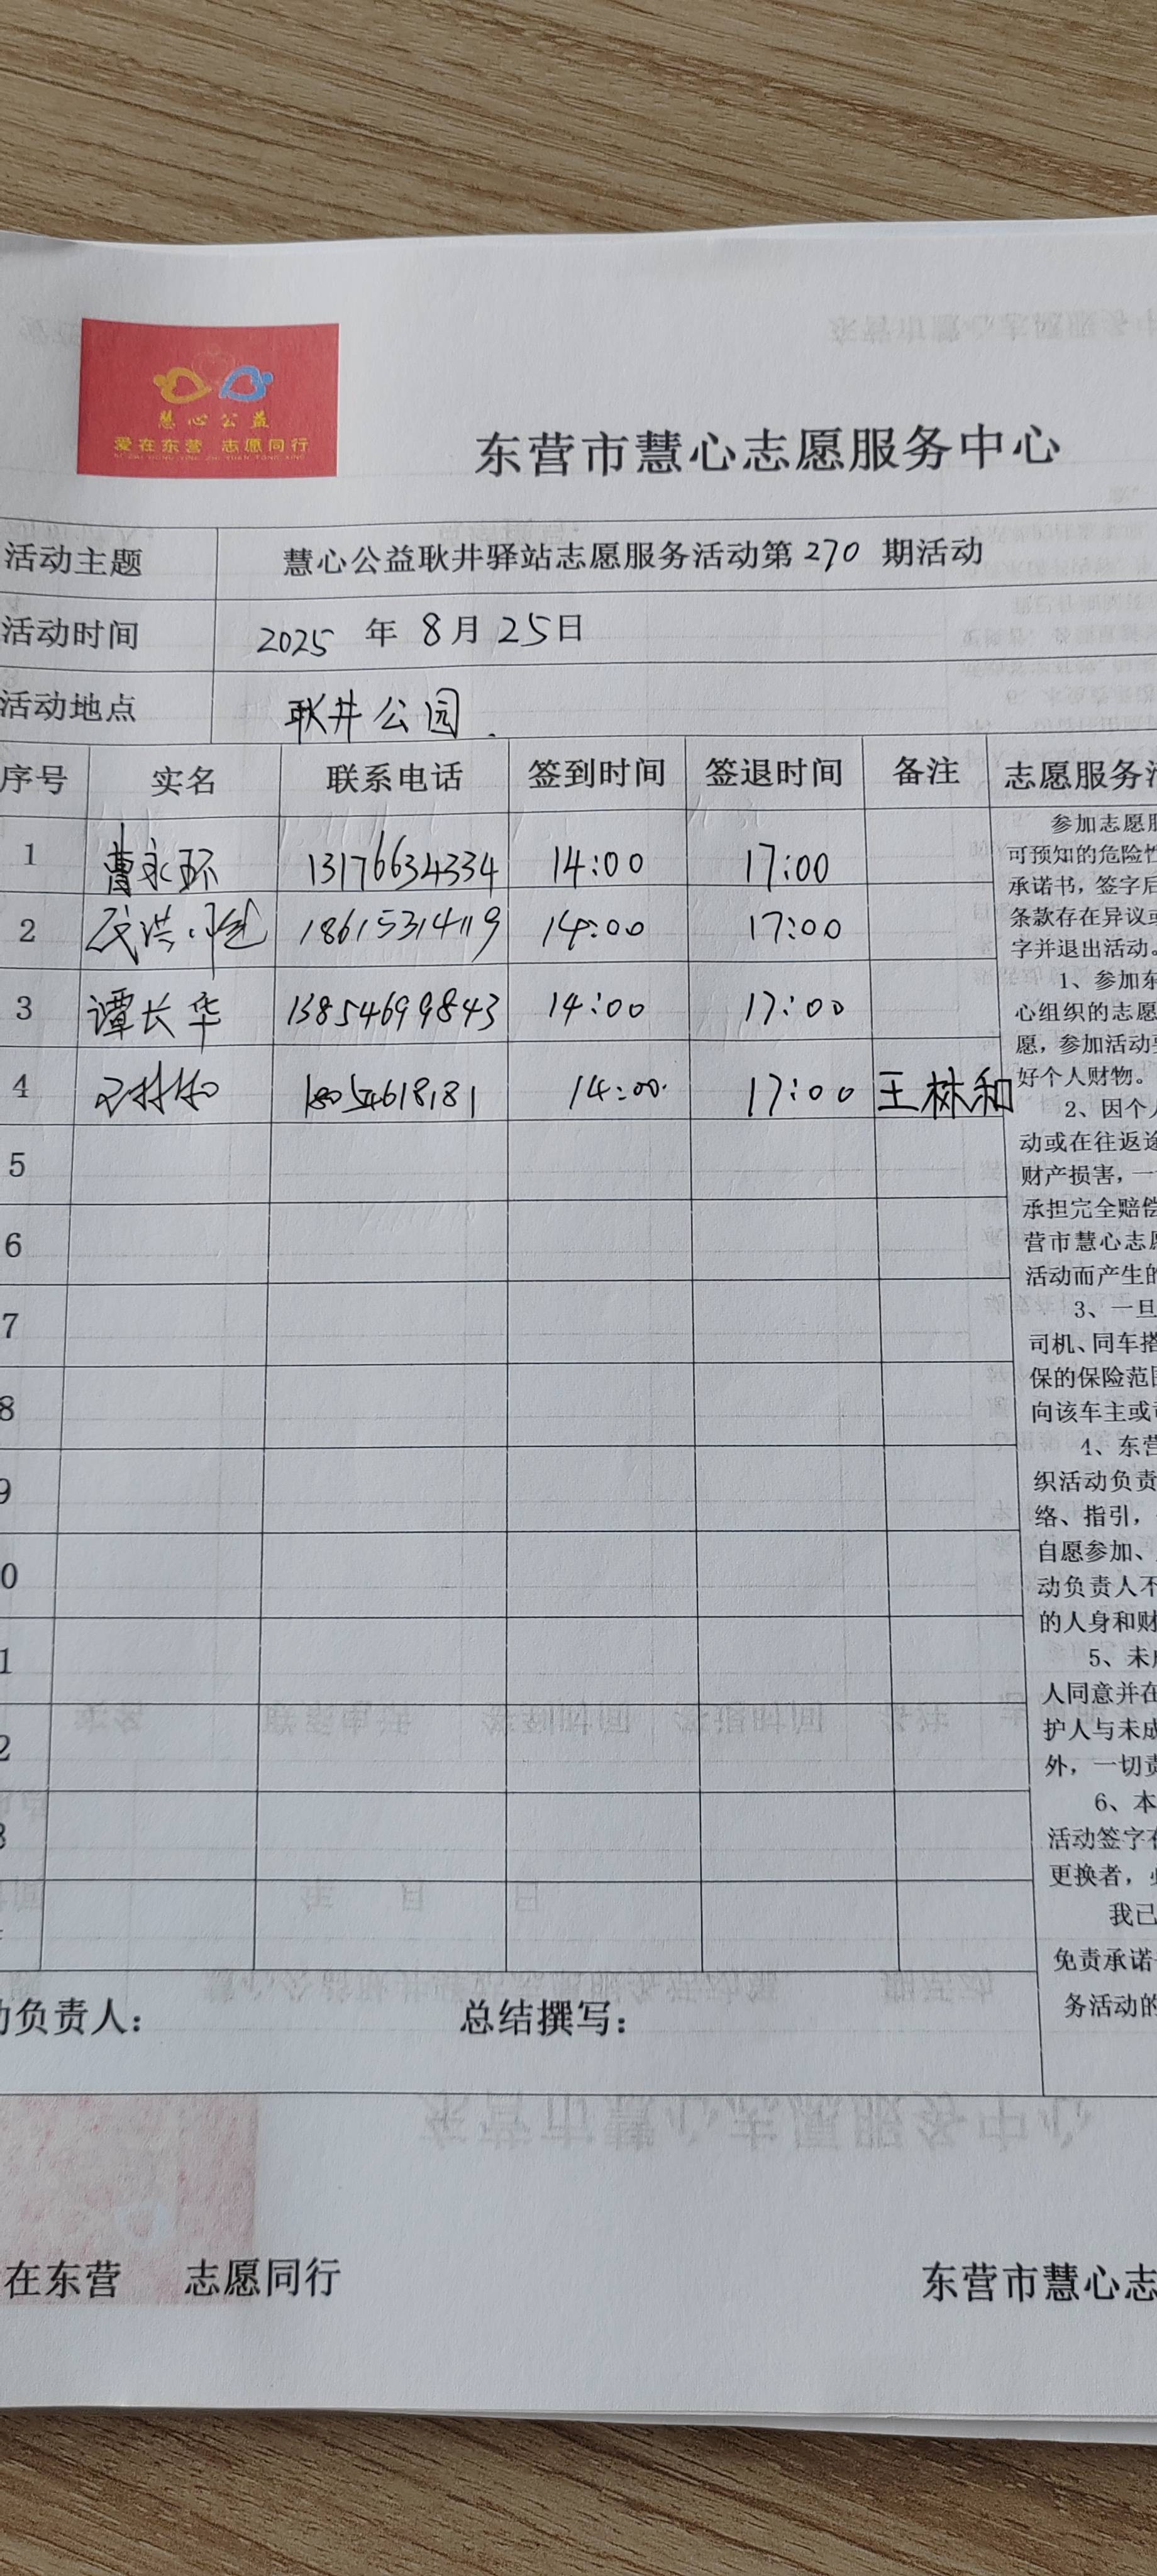 慧心公益
爱在东营 志愿同行
东营市慧心志愿服务中心
活动主题 慧心公益耿井驿站志愿服务活动第270期活动
活动时间 2025年8月25日
活动地点 耿井公园
序号 实名 联系电话 签到时间 签退时间 备注 志愿服务
1 曹永环 13176634334 14:00 17:00
2 18615314119 14:00 17:00
3 谭长华 13854699843 14:00 17:00
4 14:00 17:00 王林和
5
6
7
8
9
0
1
2
3
参加志愿
可预知的危险性
承诺书，签字后
条款存在异议或
字并退出活动。
1、参加东
心组织的志愿
愿，参加活动
好个人财物。
2、因个人
动或在往返途
财产损害，一
承担完全赔偿
营市慧心志愿
活动而产生的
3、一旦
司机、同车搭
保的保险范围
向该车主或
4、东营
织活动负责
络、指引，
自愿参加、
动负责人不
的人身和财
5、未成
人同意并在
护人与未成
外，一切责
6、本
活动签字在
更换者，
我已
免责承诺
务活动的
负责人： 总结撰写：
在东营 志愿同行 东营市慧心志